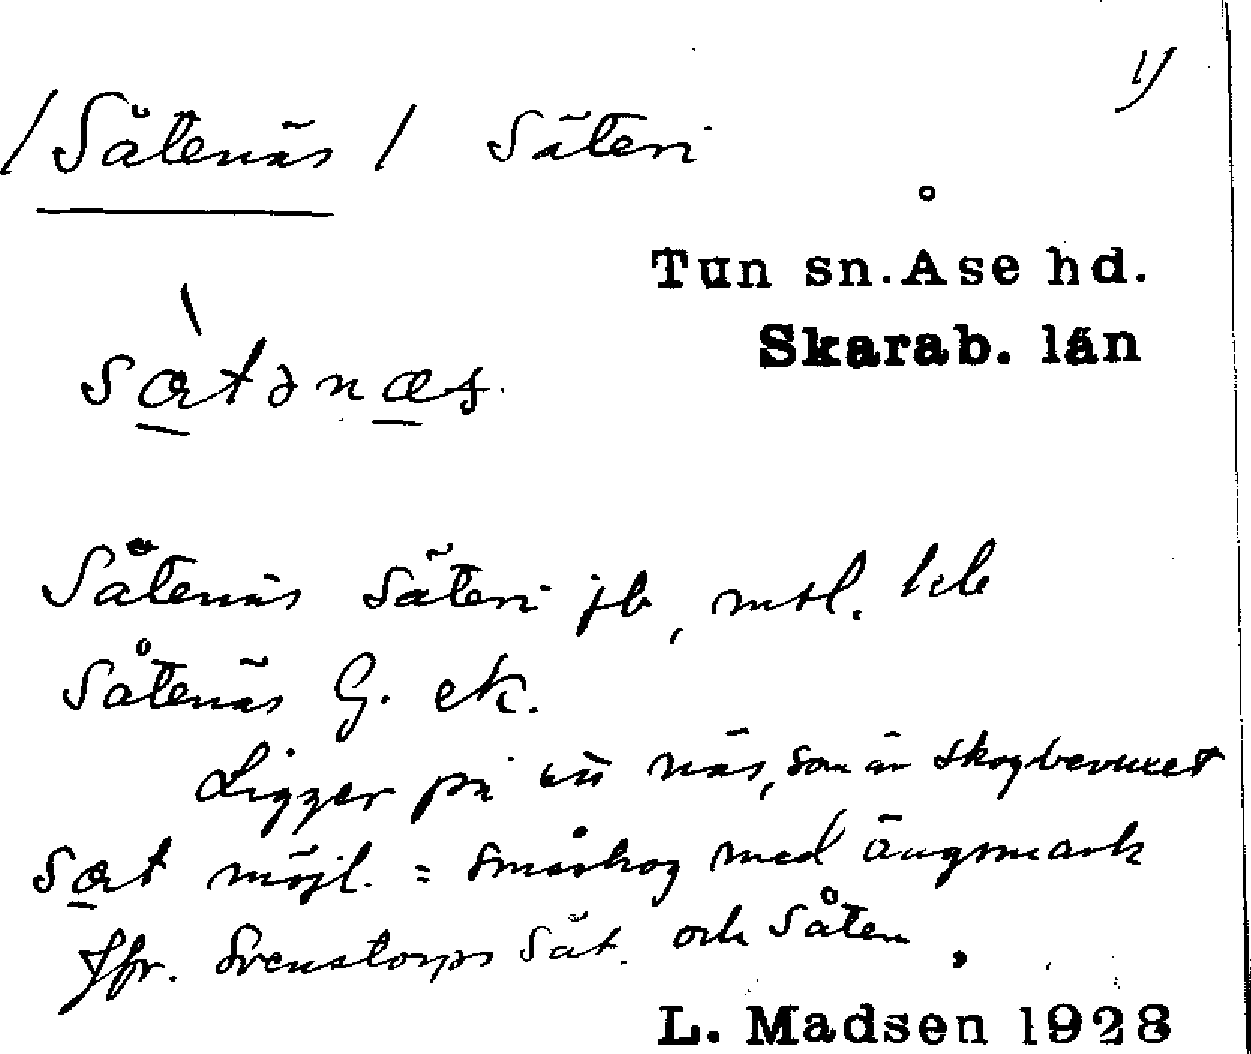 1)
/Såtenäs/ Säteri
Tun sn. Åse hd.
Skarab. län
sætənæs.
Såtenäs Säteri jb, mtl.
Såtenäs G. ek.
Ligger på ett näs, som är skogbevuxet
sæt möjl. = småskog med ängsmark
Jfr. Svenstorps Sät. och Såten.
L. Madsen 1928